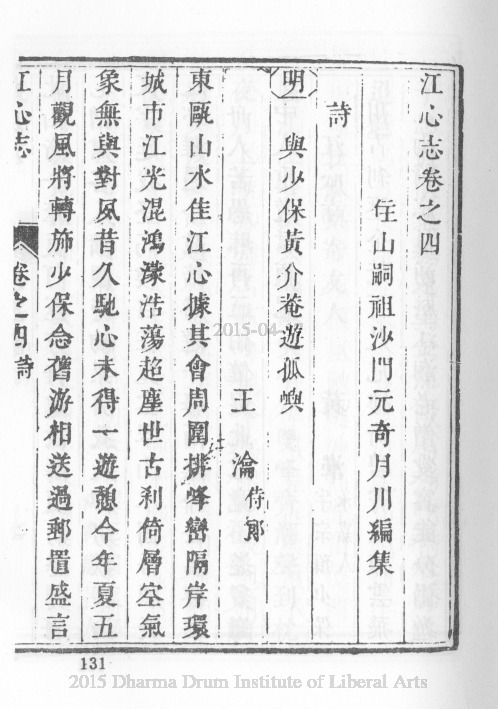 江心志卷之四
住山嗣祖沙門元奇月川編集
詩
明 與少保黃介菴遊孤嶼
王瀹侍郎
東甌山水佳江心據其會周圍排峰巒隔岸環
城市江光混鴻濛浩蕩超塵世古刹倚層空氣
象無與對夙昔久馳心未得一遊憩今年夏五
月觀風將轉斾少保念舊游相送過郵置盛言
江心志 卷之四 詩
131
2015-04-
2015 Dharma Drum Institute of Liberal Arts